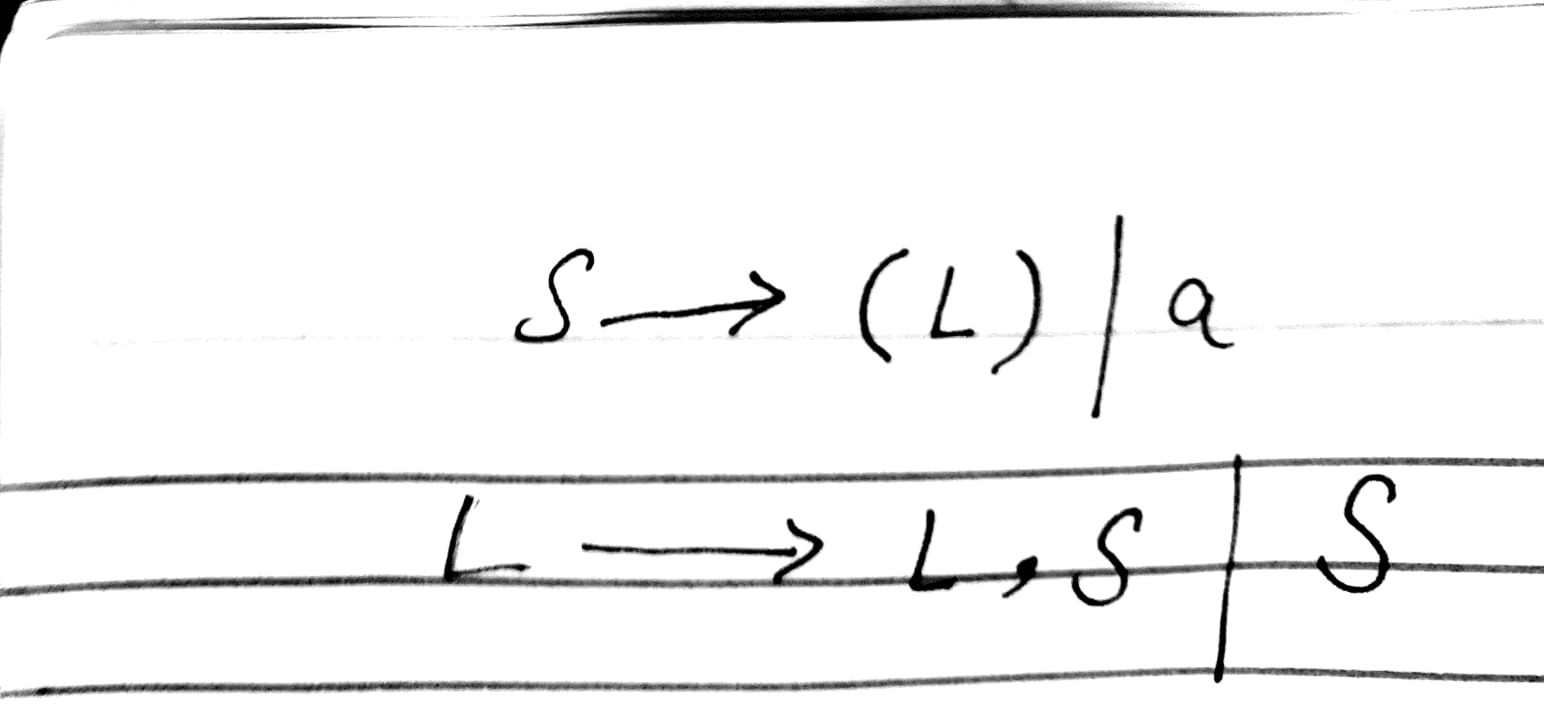 S → (L) | a
L → L, S | S